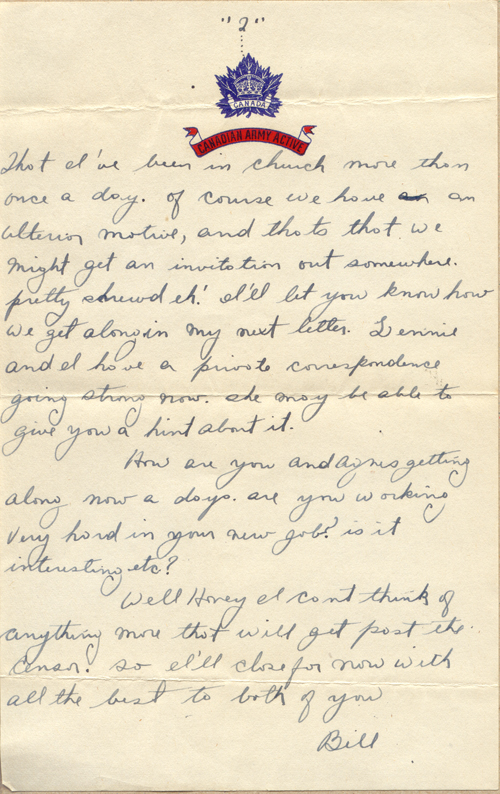 "2"
CANADA
CANADIAN ARMY ACTIVE
That I've been in church more than
once a day. of course we have an an
ulterior motive, and thats that we
might get an invitation out somewhere.
pretty shrewd eh! I'll let you know how
we get along in my next letter. Lennie
and I have a private correspondence
going strong now. she may be able to
give you a hint about it.
How are you and Agnes getting
along now a days. are you working
very hard in your new job? is it
interesting etc?
Well Harvey I cant think of
anything more that will get past the
Censor. so I'll close for now with
all the best to both of you
Bill